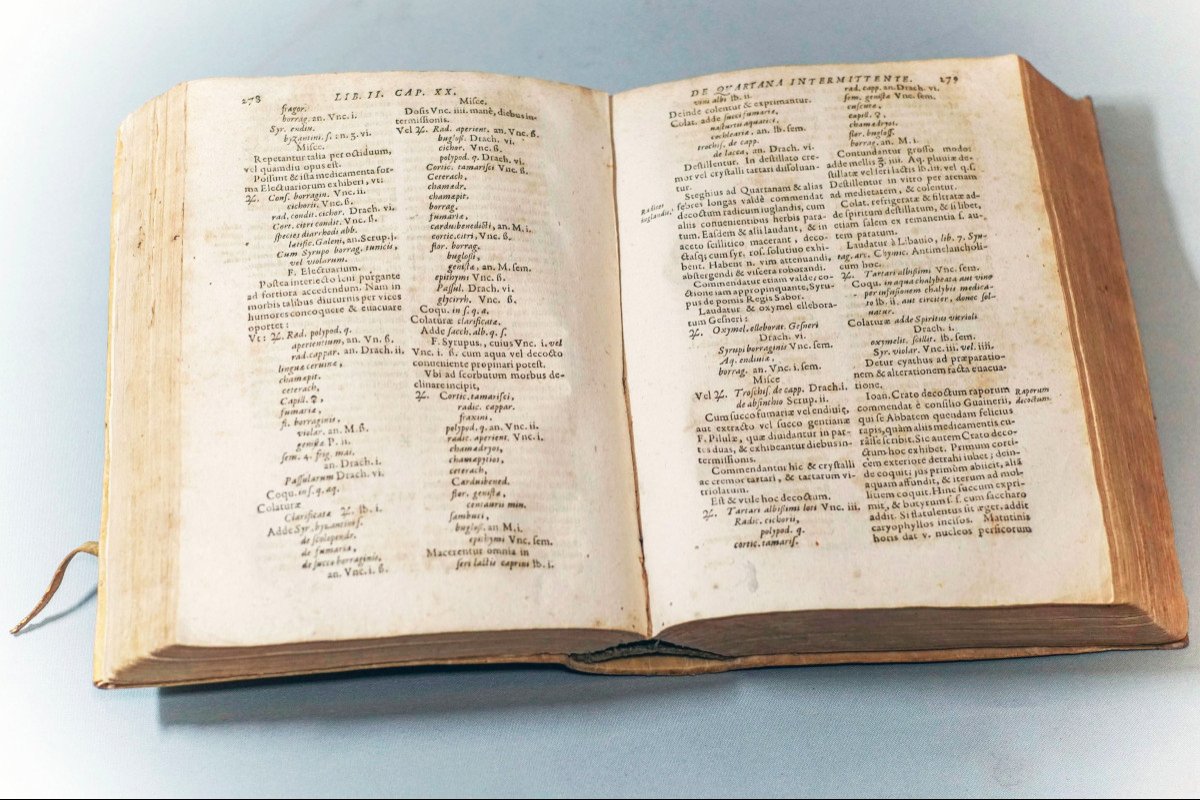 278
LIB. II. CAP. XX.
fragor.
borrag. an. Vnc. i.
Syr. endiu.
byzantini. s. an. ʒ. vi.
Misce.
Repetantur talia per octiduum,
vel quandiu opus est.
Possunt & ista medicamenta for-
ma Electuariorum exhiberi, vt:
♃. Cons. borragin. Vnc. ii.
cichorii. Vnc. ß.
rad. condit. cichor. Drach. vi.
Cort. citri condit. Vnc. ß.
species diarrhodi abb.
latific. Galeni, an. Scrup. j.
Cum Syrupo borrag. tunicis,
vel violarum.
F. Electuarium.
Postea interiecto leni purgante
ad fortiora accedendum. Nam in
morbis talibus diuturnis per vices
humores concoquere & euacuare
oportet:
Vt: ♃. Rad. polypod. q.
aperientium, an. Vn. ß.
rad. cappar. an. Drach. ii,
linguæ ceruinæ,
chamæpit.
ceterach,
Capill. ♀,
fumariæ,
fl. borraginis,
violar. an. M. ß.
genistæ P. ii.
sem. 4. frig. mai.
an. Drach. i.
Passularum Drach. vi.
Coqu. in s. q. aq.
Colaturæ
Clarificatæ ℔. i.
Adde Syr. byzantini s.
de scolopendr.
de fumaria,
de succo borraginis,
an. Vnc. i. ß.
Misce.
Dosis Vnc. iiii. manè, diebus in-
termissionis.
Vel ♃. Rad. aperient. an. Vnc. ß.
bugloss. Drach. vi.
cichor. Vnc. ß.
polypod. q. Drach. vi.
Cortic. tamarisci Vnc. ß.
Ceterach,
chamædr.
chamæpit.
borrag.
fumariæ,
cardui benedicti, an. M. i.
cortic. citri, Vnc. ß.
flor. borrag.
buglossi,
genistæ, an. M. sem.
epithymi Vnc. ß.
Passul. Drach. vi.
glycirrh. Vnc. ß.
Coqu. in s. q. a.
Colaturæ clarificatæ.
Adde sacch. alb. q. s.
F. Syrupus, cuius Vnc. i. vel
Vnc. i. ß. cum aqua vel decocto
conueniente propinari potest.
Vbi ad scorbutum morbus de-
clinare incipit,
♃. Cortic. tamarisci,
radic. cappar.
fraxini.
polypod. q. an. Vnc. ii.
radic. aperient. Vnc. i.
chamædryos,
chamæpityos,
ceterach,
Cardui bened.
flor. genistæ,
centaurii min.
sambuci,
bugloss. an. M. i.
epithymi Vnc. sem.
Macerentur omnia in
seri lactis caprini ℔. i.
DE QVARTANA INTERMITTENTE.
279
vini albi ℔. ii.
Deinde colentur & exprimantur.
Colat. adde succi fumariæ,
nasturtii aquatici,
cochleariæ, an. ℔. sem.
trochis. de capp.
de lacca, an. Drach. vi.
Destillentur. In destillato cre-
mor vel crystalli tartari dissoluan-
tur.
Steghius ad Quartanam & alias
febres longas valdè commendat
decoctum radicum iuglandis, cum
aliis conuenientibus herbis para-
tum. Easdem & alii laudant, & in
aceto scillitico macerant, deco-
ctasq; cum syr. ros. solutiuo exhi-
bent. Habent n. vim attenuandi,
abstergendi & viscera roborandi.
Commendatur etiam valdè co-
ctione iam appropinquante, Syru-
pus de pomis Regis Sabor.
Laudatur & oxymel ellebora-
tum Gesneri:
♃. Oxymel. elleborat. Gesneri
Drach. vi.
Syrupi borraginis Vnc. sem.
Aq. endiuiæ,
borrag. an. Vnc. i. sem.
Misce
Vel ♃. Trochis. de capp. Drach. i.
de absinthio Scrup. ii.
Cum succo fumariæ vel endiuiæ,
aut extracto vel succo gentianæ
F. Pilulæ, quæ diuidantur in par-
tes duas, & exhibeantur diebus in-
termissionis.
Commendantur hic & crystalli
ac cremor tartari, & tartarum vi-
triolatum.
Est & vtile hoc decoctum.
♃. Tartari albissimi loti Vnc. iii.
Radic. cichorii,
polypod. q.
cortic. tamaris.
Radices
iuglandis.
rad. capp. an. Drach. vi.
sem. genistæ Vnc. sem.
cuscutæ,
capill. ♀,
chamædryos,
flor. bugloss.
borrag. an. M. i.
Contundantur grosso modo:
adde mellis ℥. iiii. Aq. pluuiæ de-
stillatæ vel seri lactis ℔. iii. vel q. s.
Destillentur in vitro per arenam
ad medietatem, & colentur.
Colat. refrigeratæ & filtratæ ad-
de spiritum destillatum, & si libet,
etiam salem ex remanentia s. au-
tem paratum.
Laudatur à Libauio, lib. 7. Syn-
tag. arc. Chymic. Antimelancholi-
cum hoc.
♃. Tartari albissimi Vnc. sem.
Coqu. in aqua chalybeata aut vino
per infusionem chalybis medica-
to ℔. ii. aut circiter, donec sol-
uatur.
Colaturæ adde Spiritus vitrioli
Drach. i.
oxymelit. scillit. ℔. sem.
Syr. violar. Vnc. iii. vel. iiii.
Detur cyathus ad præparatio-
nem & alterationem facta euacua-
tione.
Ioan. Crato decoctum raporum
commendat è consilio Guainerii,
qui se Abbatem quendam felicius
rapis, quàm aliis medicamentis cu-
rasse scribit. Sic autem Crato deco-
ctum hoc exhibet. Primum corti-
cem exteriorè detrahi iubet; dein-
de coquit; jus primùm abiicit, aliā
aquam affundit, & iterum ad mol-
litiem coquit. Hinc succum expri-
mit, & butyrum s. f. cum saccharo
addit. Si flatulentus sit æger, addit
caryophyllos incisos. Matutinis
horis dat v. nucleos persicorum
Raporum
decoctum.